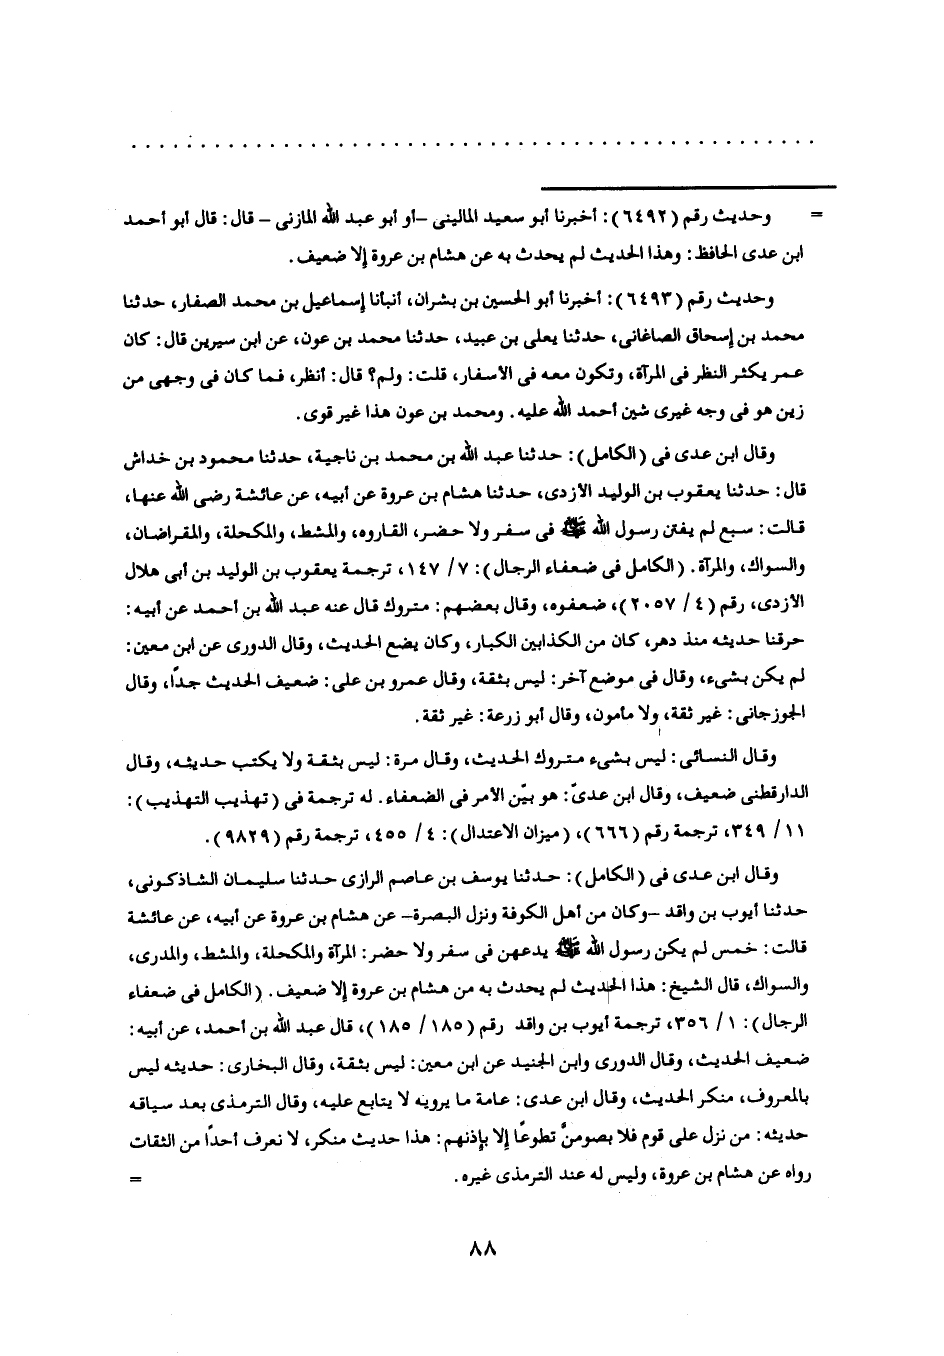 . . . . . . . . . . . . . . . . . . . . . . . . . . . . . . . . . . . . . . . . . . . . . . . . . .
= وحديث رقم (٦٤٩٢): أخبرنا أبو سعيد المالينى -أو أبو عبد الله المازنى - قال: قال أبو أحمد
ابن عدى الحافظ: وهذا الحديث لم يحدث به عن هشام بن عروة إلا ضعيف.
وحديث رقم (٦٤٩٣): أخبرنا أبو الحسين بن بشران، أنبأنا إسماعيل بن محمد الصفار، حدثنا
محمد بن إسحاق الصاغانى، حدثنا يعلى بن عبيد، حدثنا محمد بن عون، عن ابن سيرين قال: كان
عمر يكثر النظر فى المرآة، وتكون معه فى الأسفار، قلت: ولم؟ قال: أنظر، فما كان فى وجهى من
زين هو فى وجه غيرى شين أحمد الله عليه. ومحمد بن عون هذا غير قوى.
وقال ابن عدى فى (الكامل): حدثنا عبد الله بن محمد بن ناجية، حدثنا محمود بن خداش
قال: حدثنا يعقوب بن الوليد الأزدى، حدثنا هشام بن عروة عن أبيه، عن عائشة رضى الله عنها،
قالت: سبع لم يفتن رسول الله ﷺ فى سفر ولا حضر، القاروه، والمشط، والمكحلة، والمقراضان،
والسواك، والمرآة. (الكامل فى ضعفاء الرجال): ٧/ ١٤٧، ترجمة يعقوب بن الوليد بن أبى هلال
الأزدى، رقم (٤/ ٢٠٥٧)، ضعفوه، وقال بعضهم: متروك قال عنه عبد الله بن أحمد عن أبيه:
حرقنا حديثه منذ دهر، كان من الكذابين الكبار، وكان يضع الحديث، وقال الدورى عن ابن معين:
لم يكن بشىء، وقال فى موضع آخر: ليس بثقة، وقال عمرو بن على: ضعيف الحديث جدًا، وقال
الجوزجانى: غير ثقة، ولا مأمون، وقال أبو زرعة: غير ثقة.
وقال النسائى: ليس بشىء متروك الحديث، وقال مرة: ليس بثقة ولا يكتب حديثه، وقال
الدارقطنى ضعيف، وقال ابن عدىّ: هو بيّن الأمر فى الضعفاء. له ترجمة فى (تهذيب التهذيب):
١١/ ٣٤٩، ترجمة رقم (٦٦٦)، (ميزان الاعتدال): ٤/ ٤٥٥، ترجمة رقم (٩٨٢٩).
وقال ابن عدى فى (الكامل): حدثنا يوسف بن عاصم الرازى حدثنا سليمان الشاذكونى،
حدثنا أيوب بن واقد -وكان من أهل الكوفة ونزل البصرة- عن هشام بن عروة عن أبيه، عن عائشة
قالت: خمس لم يكن رسول الله ﷺ يدعهن فى سفر ولا حضر: المرآة والمكحلة، والمشط، والمدرى،
والسواك، قال الشيخ: هذا الحديث لم يحدث به من هشام بن عروة إلا ضعيف. (الكامل فى ضعفاء
الرجال): ١/ ٣٥٦، ترجمة أيوب بن واقد رقم (١٨٥/ ١٨٥)، قال عبد الله بن أحمد، عن أبيه:
ضعيف الحديث، وقال الدورى وابن الجنيد عن ابن معين: ليس بثقة، وقال البخارى: حديثه ليس
بالمعروف، منكر الحديث، وقال ابن عدى: عامة ما يرويه لا يتابع عليه، وقال الترمذى بعد سياقه
حديثه: من نزل على قوم فلا بصومنَّ تطوعًا إلا بإذنهم: هذا حديث منكر، لا نعرف أحدًا من الثقات
رواه عن هشام بن عروة، وليس له عند الترمذى غيره. =
٨٨